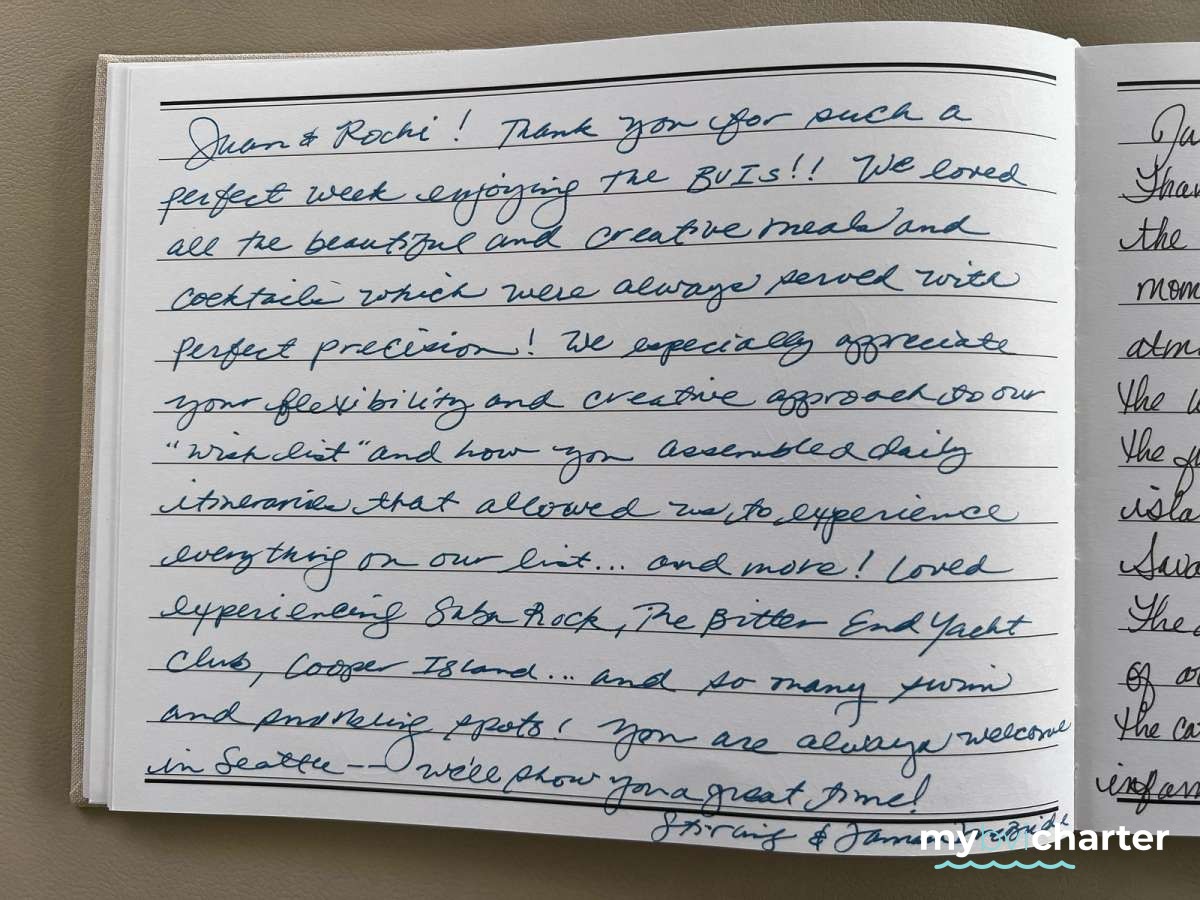 Juan & Rochi! Thank you for such a
perfect week enjoying the BVIs!! We loved
all the beautiful and creative meals and
cocktails which were always served with
perfect precision! We especially appreciate
your flexibility and creative approach to our
"wish list" and how you assembled daily
itineraries that allowed us to experience
everything on our list... and more! Loved
experiencing Saba Rock, The Bitter End Yacht
Club, Cooper Island... and so many swim
and snorkeling spots! You are always welcome
in Seattle -- we'll show you a great time!
Stirling &
Than
the
mom
atm
the
the
isla
Sava
The
of
the ca
infam
my charter